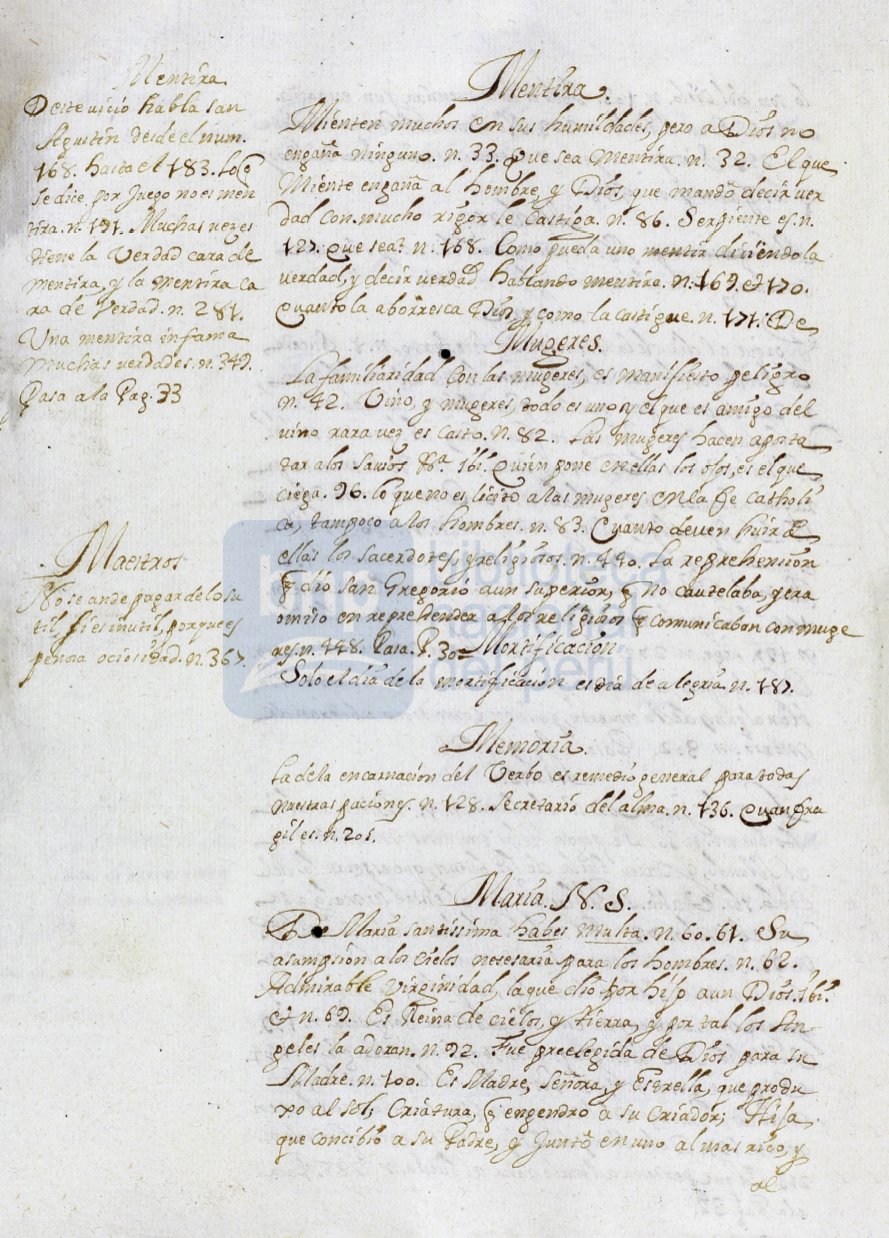 Mentira
Deste vicio habla san
Agustin desde el num.
168. hasta el 183. Lo q̃
se dice por Juego no es men
tira. n. 171. Muchas vezes
tiene la Verdad cara de
mentira, y la mentira ca
ra de Verdad. n. 281.
Una mentira infama
muchas verdades. n. 349.
Pasa a la Pag. 33
Maestros
No se ande pagar de lo su
til, si es inutil, porque es
penosa ociosidad. n. 367.
Mentira.
Mienten muchos en sus humildades, pero a Dios no
engaña ninguno. n. 33. Que sea Mentira. n. 32. El que
Miente engaña al hombre, y Dios, que mandó decir ver
dad con mucho rigor le Castiga. n. 86. Serpiente es. n.
127. Que sea? n. 168. Como pueda uno mentir diciendo la
verdad, y decir verdad hablando mentira. n. 169. et 170.
Quanto la aborresca Dios, y como la castigue. n. 171. De
Mugeres.
La familiaridad con las mugeres, es manifiesto peligro
n. 42. Vino, y mugeres, todo es uno, y el que es amigo del
vino rara vez es casto. n. 82. Las mugeres hacen aposta
tar a los savios &ª. ibi. Quien pone en ellas los ojos, es el que
ciega. 96. lo que no es licito a las mugeres en la fe catholi
ca, tampoco a los hombres. n. 83. Cuanto deven huir de
ellas los sacerdotes, y religiosos. n. 440. La reprehension
q̃ dio san Gregorio a un superior, q̃ no cautelaba, y era
omiso en reprehender a los religiosos q̃ comunicaban con muge
res. n. 448. Pasa. P. 30=
Mortificacion
Solo el dia de la mortificacion es dia de alegria. n. 187.
Memoria.
La de la encarnacion del Verbo es remedio general para todas
nuestras paciones. n. 128. Secretario del alma. n. 136. Quan fra
gil es. n. 205.
Maria. N. S.
De Maria santissima habes multa. n. 60. 61. Su
asumpsion a los cielos nesesaria para los hombres. n. 62.
Admirable Virginidad, la que dió por hijo a un Dios. ibi.
et n. 69. Es Reina de cielos, y tierra, y por tal los An-
geles la adoran. n. 92. Fue preelegida de Dios para su
Madre. n. 100. Es Madre, Señora, y Estrella, que produ
xo al sol; Criatura, q̃ engendro a su Criador; Hija,
que concibió a su Padre, y Juntó en uno al mas rico, y
al
biblioteca
nacional
del perú
bnp